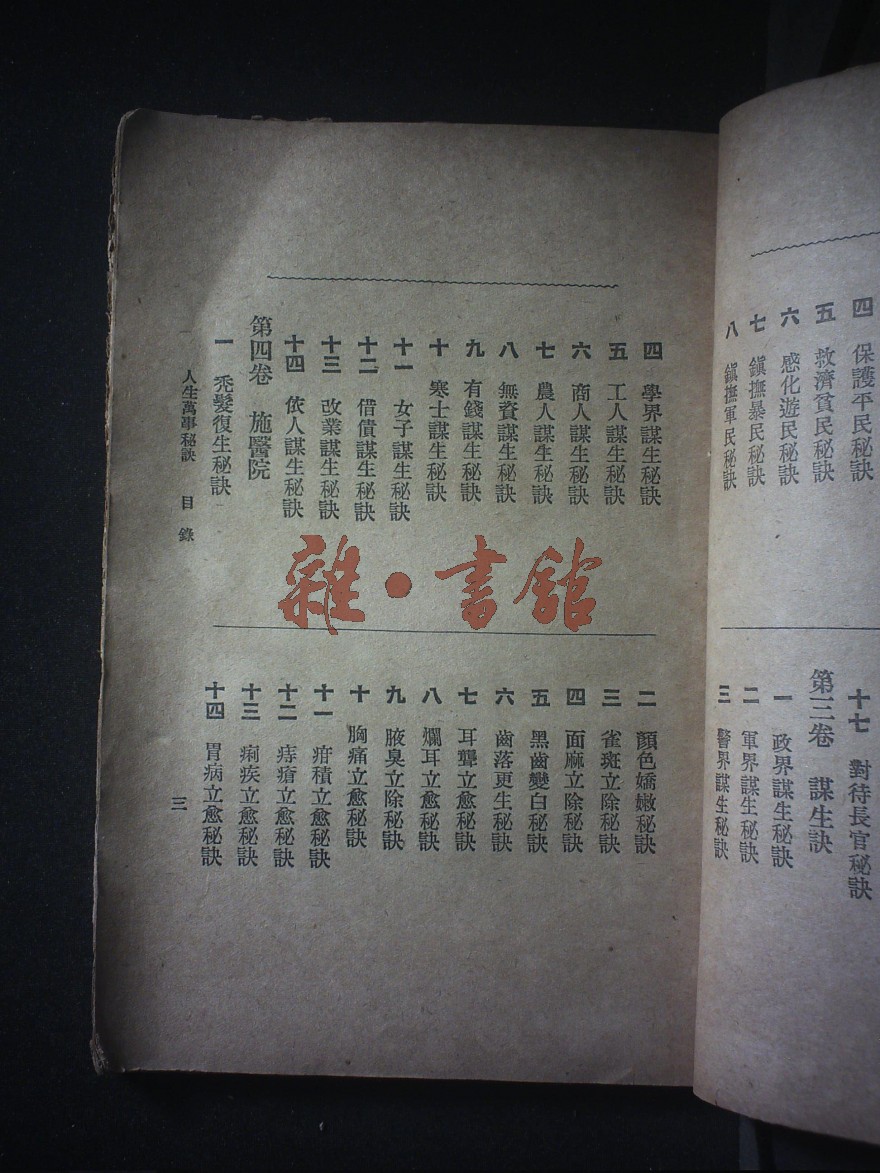 四 保護平民秘訣
五 救濟貧民秘訣
六 感化遊民秘訣
七 鎭撫暴民秘訣
八 鎭撫軍民秘訣
十七 對待長官秘訣
第三卷 謀生訣
一 政界謀生秘訣
二 軍界謀生秘訣
三 警界謀生秘訣
四 學界謀生秘訣
五 工人謀生秘訣
六 商人謀生秘訣
七 農人謀生秘訣
八 無資謀生秘訣
九 有錢謀生秘訣
十 寒士謀生秘訣
十一 女子謀生秘訣
十二 借債謀生秘訣
十三 改業謀生秘訣
十四 依人謀生秘訣
第四卷 施醫院
一 禿髮復生秘訣
二 顏色嬌嫩秘訣
三 雀斑立除秘訣
四 面麻立除秘訣
五 黑齒變白秘訣
六 齒落更生秘訣
七 耳聾立愈秘訣
八 爛耳立愈秘訣
九 腋臭立除秘訣
十 胸痛立愈秘訣
十一 疳積立愈秘訣
十二 痔瘡立愈秘訣
十三 痢疾立愈秘訣
十四 胃病立愈秘訣
人生萬事秘訣 目錄
三
雜·書館